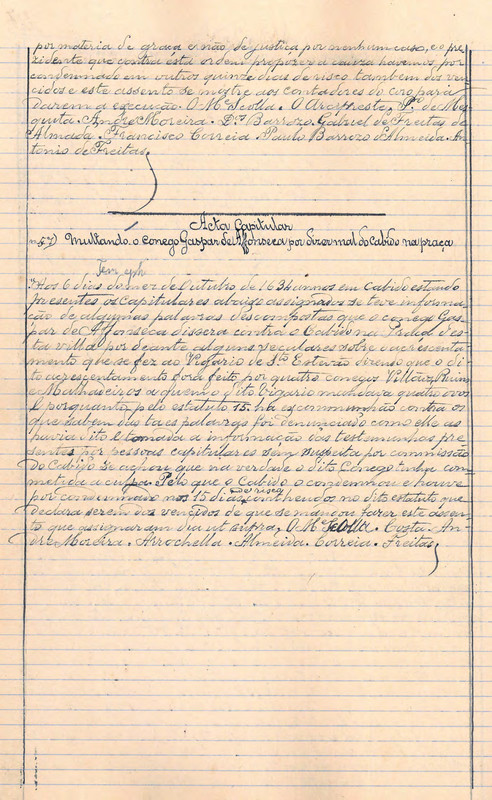 por materia de graça e não de justiça por nenhum caso, e o pre
zidente que contra ésta ordem propozer a cauza havemos por
condemnado em outros quinze dias de risco tambem dos ven
cidos e este assento se mostre aos contadores do coro para
darem a execução. O M. Scolla. O Arcipreste, P.º de Mes
quita. André Moreira. D.or Barrozo. Gabriel de Freitas de
Almada, Francisco Correia. Paulo Barrozo d'Almeida. An
tonio de Freitas.
Acto Capitular
n.57) Multando o conego Gaspar de Affonseca por dizer mal do Cabido na praça
Aos 6 dias do mez de Outubro de 1634 annos em cabido estando
presentes os capitulares abaixo assignados se teve informa
ção de algumas palavras descompostas que o conego Gas
par de Affonseca dissera contra o Cabido na Praça d'es
ta villa por deante alguns seculares sobre o acrescenta
mento que se fez ao Vigario de S.to Estevão dizendo que o di
to acrescentamento fora feito por quatro conegos
e Malhaseiros a quem o dito Vigario mandava quatro ovos
E porquanto pelo estatuto 15. ha excommunhão contra os
que sabem das taes palavras foi denunciado como elle as
havia dito e tomada a informação das testemunhas pre
sentes por pessoas capitulares sem suspeita por commissão
do Cabido se achou que na verdade o dito Conego tinha com
metida a culpa. Pelo que o Cabido o condemnou e houve
por condemnado nos 15 dias de risco conthendos no dito estatuto que
declara serem dos vencidos de que se mandou fazer este assen
to que assignaram dia ut supra. O M. Scolla. Costa. An
dré Moreira. Arrochella. Almeida. Correia. Freitas.